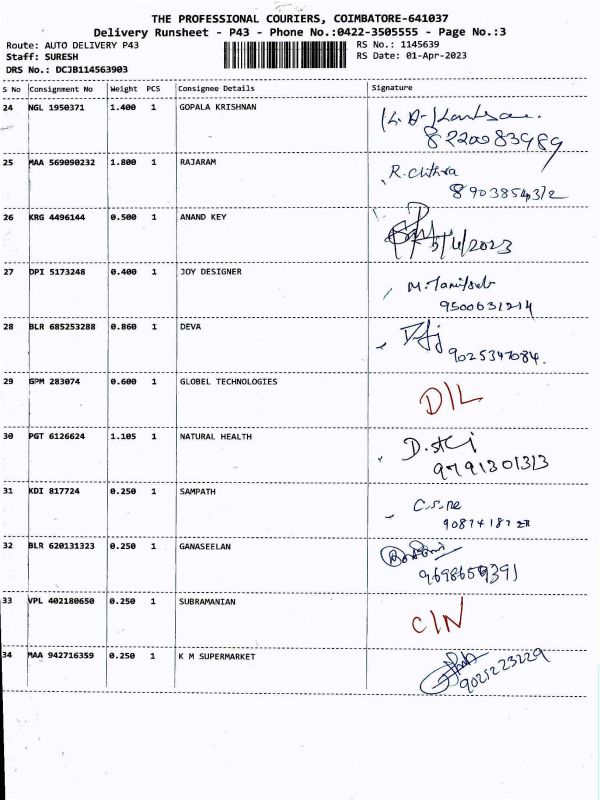 THE PROFESSIONAL COURIERS, COIMBATORE-641037
Delivery Runsheet - P43 - Phone No.:0422-3505555 - Page No.:3
Route: AUTO DELIVERY P43 RS No.: 1145639
Staff: SURESH RS Date: 01-Apr-2023
DRS No.: DCJB114563903
S No Consignment No Weight PCS Consignee Details Signature
24 NGL 1950371 1.400 1 GOPALA KRISHNAN
8220083989
25 MAA 569090232 1.800 1 RAJARAM R. Chithra
8903854312
26 KRG 4496144 0.500 1 ANAND KEY
27 DPI 5173248 0.400 1 JOY DESIGNER
9500631214
28 BLR 685253288 0.860 1 DEVA
9025347084.
29 GPM 283074 0.600 1 GLOBEL TECHNOLOGIES D/L
30 PGT 6126624 1.105 1 NATURAL HEALTH
9791301313
31 KDI 817724 0.250 1 SAMPATH
32 BLR 620131323 0.250 1 GANASEELAN
9698659391
33 VPL 402180650 0.250 1 SUBRAMANIAN C/N
34 MAA 942716359 0.250 1 K M SUPERMARKET
9025223229